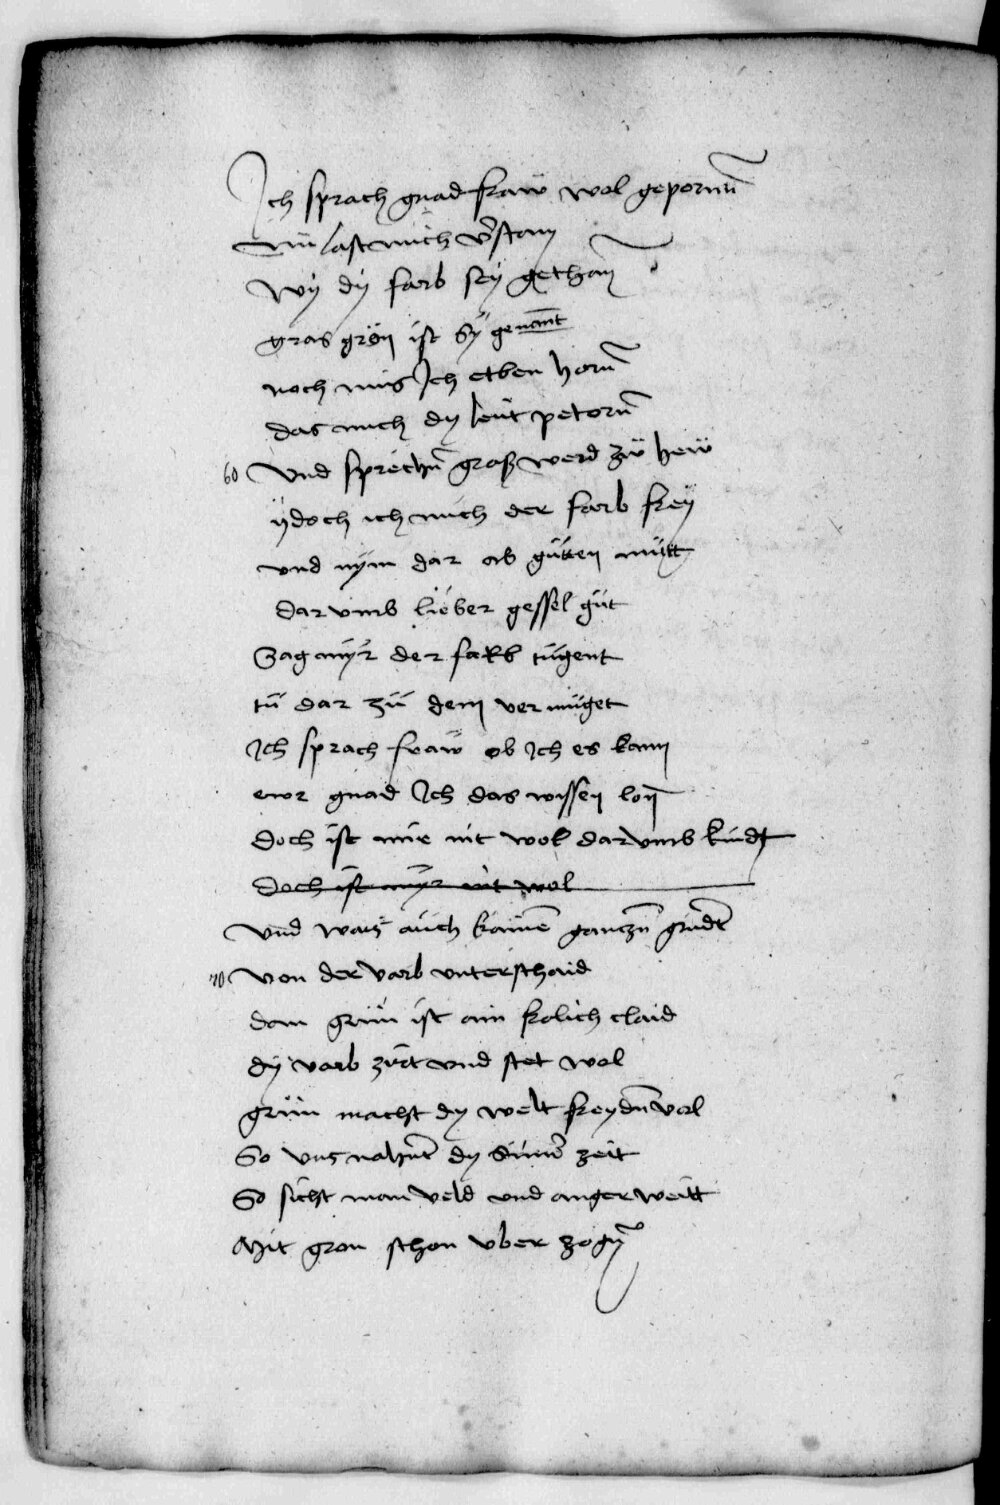 Ich sprach gnad fraw wol geporn̄
Nu last mich v̄stan
Wÿ dÿ farb seÿ gethan̄
gras grön ist Sÿ genant
noch mus Ich etben horn̄
das mich dy leut petorn̄
60 Vnd sprechn̄ graß werd zw hew
ÿdoch ich mich der farb freÿ
vnd nÿm dar ab gütten mütt
dar vmb lieber gessel güt
Sag mÿr der farb tugent
tü dar zü dem vermüget
Ich sprach fraw ob Ich es kann
ewr gnad Ich das wissen lon̄
doch ist mir nit wol dar vmb kundt
doch ist mÿr nit wol
vnd wais auch kainē ganczn̄ grūdt
70 von der varb vnterschaid
dan grün ist ain frolich claid
dÿ varb zirt vnd stet wol
grün macht dy welt freydn̄ vol
So vns nahnt̄ dy Sumer zeit
So sicht man veld vnd anger weitt
Mit gron schon vber zogn̄